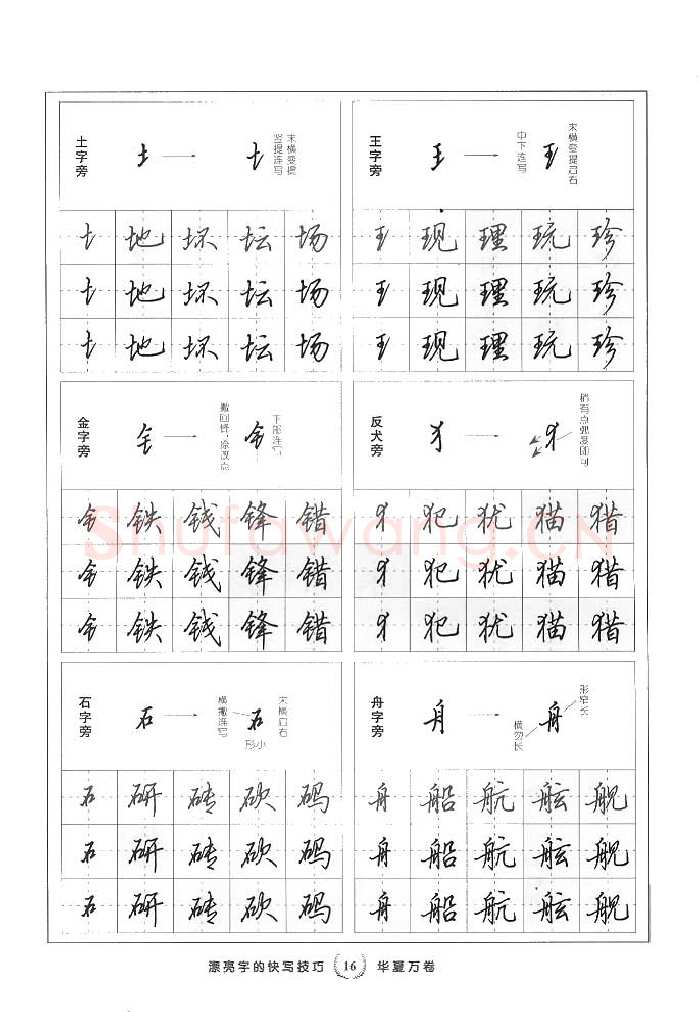 土字旁 土 土 末横变提 竖提连写
王字旁 王 中下连写 王 末横变提启右
土 地 坏 坛 场
王 现 理 玩 珍
土 地 坏 坛 场
王 现 理 玩 珍
土 地 坏 坛 场
王 现 理 玩 珍
金字旁 钅 撇回锋,除改点 钅 下部连写
反犬旁 犭 犭 稍有点弧度即可
钅 铁 钱 锋 错
犭 犯 犹 猫 猎
Shufawang.CN
钅 铁 钱 锋 错
犭 犯 犹 猫 猎
钅 铁 钱 锋 错
犭 犯 犹 猫 猎
石字旁 石 横撇连写 石 末横启右 形小
舟字旁 舟 横勿长 舟 形窄长
石 研 砖 砍 码
舟 船 航 舷 舰
石 研 砖 砍 码
舟 船 航 舷 舰
石 研 砖 砍 码
舟 船 航 舷 舰
漂亮字的快写技巧 16 华夏万卷